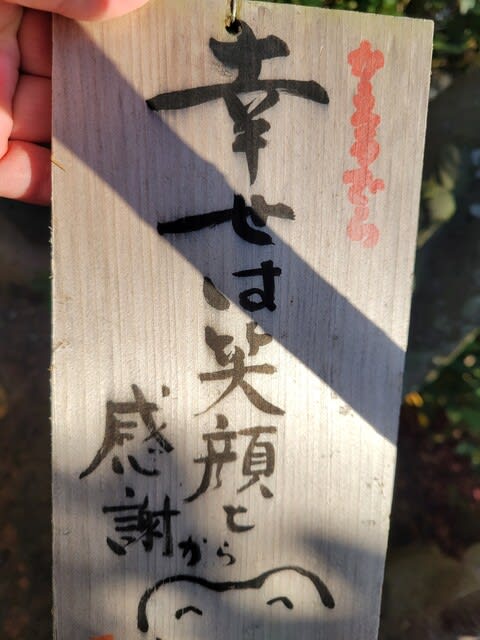 かえるでら
幸せは笑顔と
感謝から